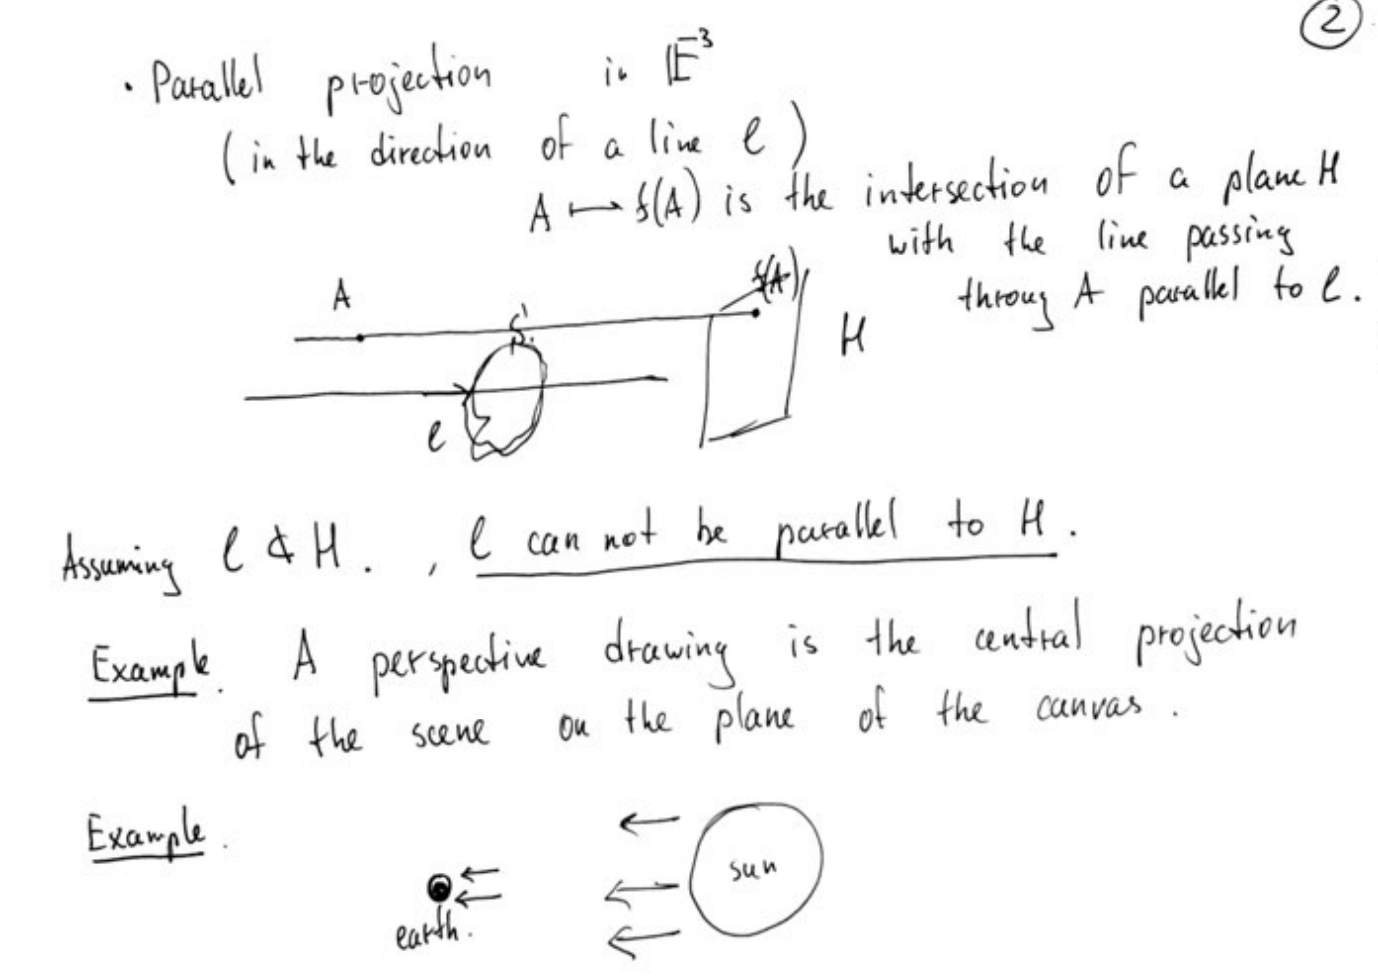 2
· Parallel projection in E³
(in the direction of a line l)
A ↦ f(A) is the intersection of a plane H
with the line passing
throug A parallel to l.
A
f(A)
S'
H
l
Assuming l ⊄ H. , l can not be parallel to H.
Example. A perspective drawing is the central projection
of the scene on the plane of the canvas.
Example.
sun
earth.